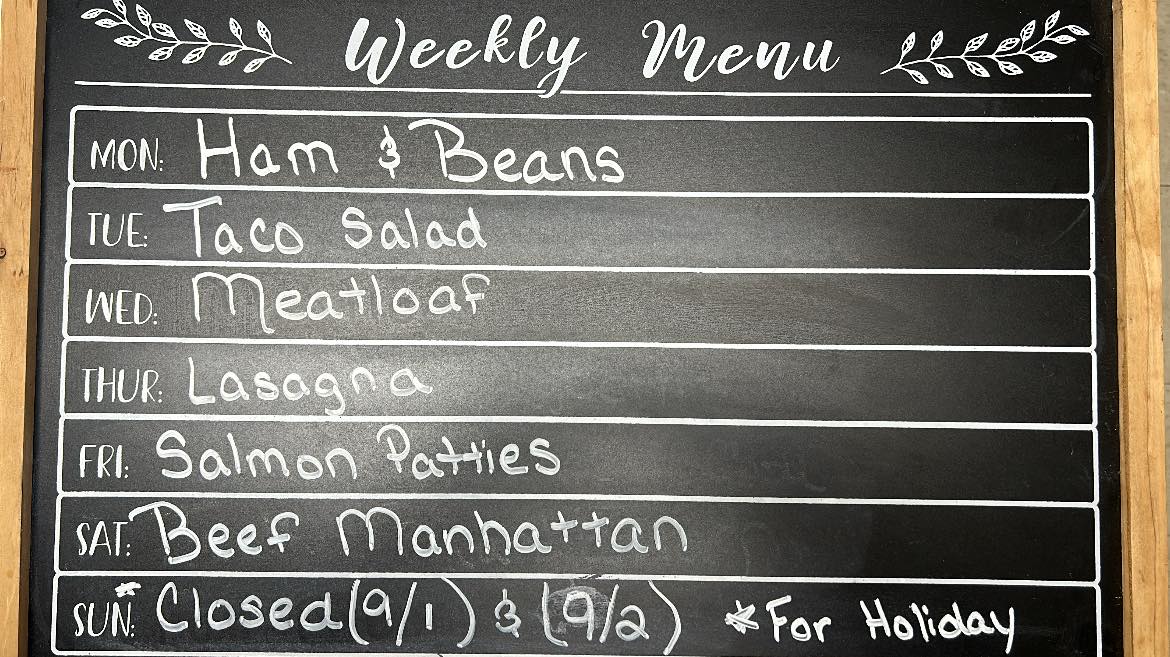 Weekly Menu
MON: Ham & Beans
TUE: Taco Salad
WED: Meatloaf
THUR: Lasagna
FRI: Salmon Patties
SAT: Beef Manhattan
SUN: * Closed (9/1) & (9/2) *For Holiday